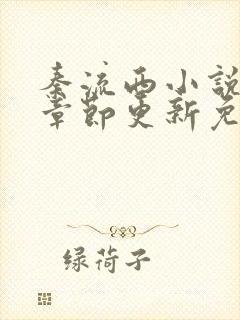 秦流西小說
章節更新免
绿荷子